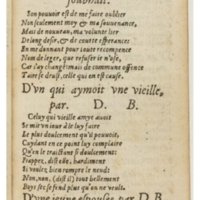 souhhait.
Bon pouvoir est de me faire oublier
Non seulement moy & ma souvenance,
Mais de nouueau, ma volunté lier
D'un long desir, & de courte esperance
En me donnant pour toute recompence
Nom de leger, que refuser ie n'ose,
Car i'ay changé mais de commune offence
Taire se doit, celle qui en est cause.
D'vn qui aymoit vne vieille,
par. D. B.
Celuy qui vieille amye auoit
Se mit vn iour à le luy faire
Le plus doulcement qu'il pouuoit,
Cuydant en ce point luy complaire
Qu'on le traictast si doulcement:
Frappez, dist elle, hardiment
Si voulez bien rompre le neud:
Non, non, (dist il) tout bellement
Boys sec se fend plus qu'on ne veult.
D'vne ieune espousée, par D. B.